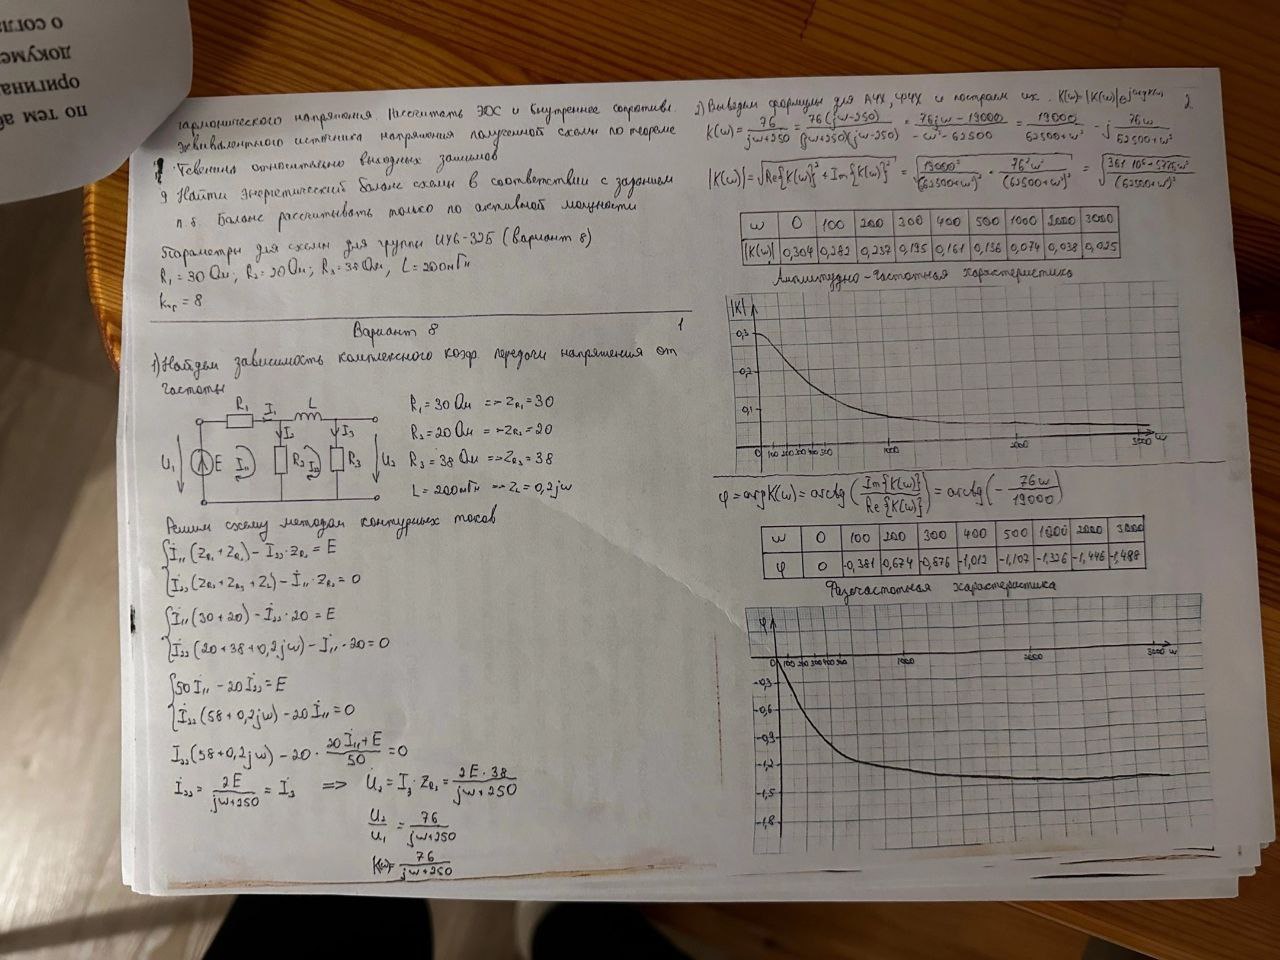 о согла
докумен
оригина
по тем аб
гармонического напряжения Рассчитать ЭДС и внутреннее сопротивл.
эквивалентного источника напряжения полученной схемы по теореме
Тевенина относительно выходных зажимов
9 Найти энергетический баланс схемы в соответствии с заданием
п. 8. Баланс рассчитывать только по активной мощности
Параметры для схемы для группы ИУ6-32Б (Вариант 8)
R₁ = 30 Ом; R₂ = 20 Ом; R₃ = 38 Ом, L = 200мГн
= 8
Вариант 8
1
1) Найдем зависимость комплексного коэф передачи напряжения от
частоты
R₁ I₁ L
I₂ I₃
U₁ E I₁₁ R₂ I₂₂ R₃ U₂
R₁ = 30 Ом => Z_R₁ = 30
R₂ = 20 Ом => Z_R₂ = 20
R₃ = 38 Ом => Z_R₃ = 38
L = 200мГн => Z_L = 0,2jω
Решим схему методом контурных токов
İ₁₁(Z_R₁ + Z_R₂) - İ₂₂·Z_R₂ = E
İ₂₂(Z_R₂ + Z_R₃ + Z_L) - İ₁₁·Z_R₂ = 0
İ₁₁(30+20) - İ₂₂·20 = E
İ₂₂(20+38+0,2jω) - İ₁₁·20 = 0
50İ₁₁ - 20İ₂₂ = E
İ₂₂(58+0,2jω) - 20İ₁₁ = 0
İ₂₂(58+0,2jω) - 20 · (20İ₁₁+E)/50 = 0
İ₂₂ = 2E/(jω+250) = İ₃ => U̇₂ = I₃·Z_R₃ = 2E·38/(jω+250)
U₂/U₁ = 76/(jω+250)
K(ω) = 76/(jω+250)
2) Выведем формулы для АЧХ, ФЧХ и построим их. K(ω)=|K(ω)|e
2
K(ω) = 76/(jω+250) = 76(jω-250)/((jω+250)(jω-250)) = (76jω - 19000)/(-ω² - 62500) = 19000/(62500+ω²) - j 76ω/(62500+ω²)
|K(ω)| = √(Re{K(ω)}² + Im{K(ω)}²) = √(19000²/(62500+ω²)² + 76²ω²/(62500+ω²)²) = √((361·10⁶+5776ω²)/(62500+ω²)²)
ω 0 100 200 300 400 500 1000 2000 3000
|K(ω)| 0,304 0,282 0,237 0,195 0,161 0,136 0,074 0,038 0,025
Амплитудно-частотная характеристика
|K|
0,3
0,2
0,1
0 100 200 300 400 500 1000 2000 3000 ω
φ = arg K(ω) = arctg(Im{K(ω)}/Re{K(ω)}) = arctg(- 76ω/19000)
ω 0 100 200 300 400 500 1000 2000 3000
φ 0 -0,381 -0,674 -0,876 -1,012 -1,107 -1,326 -1,446 -1,488
Фазочастотная характеристика
φ
0 100 200 300 400 500 1000 2000 3000 ω
-0,3
-0,6
-0,9
-1,2
-1,5
-1,8